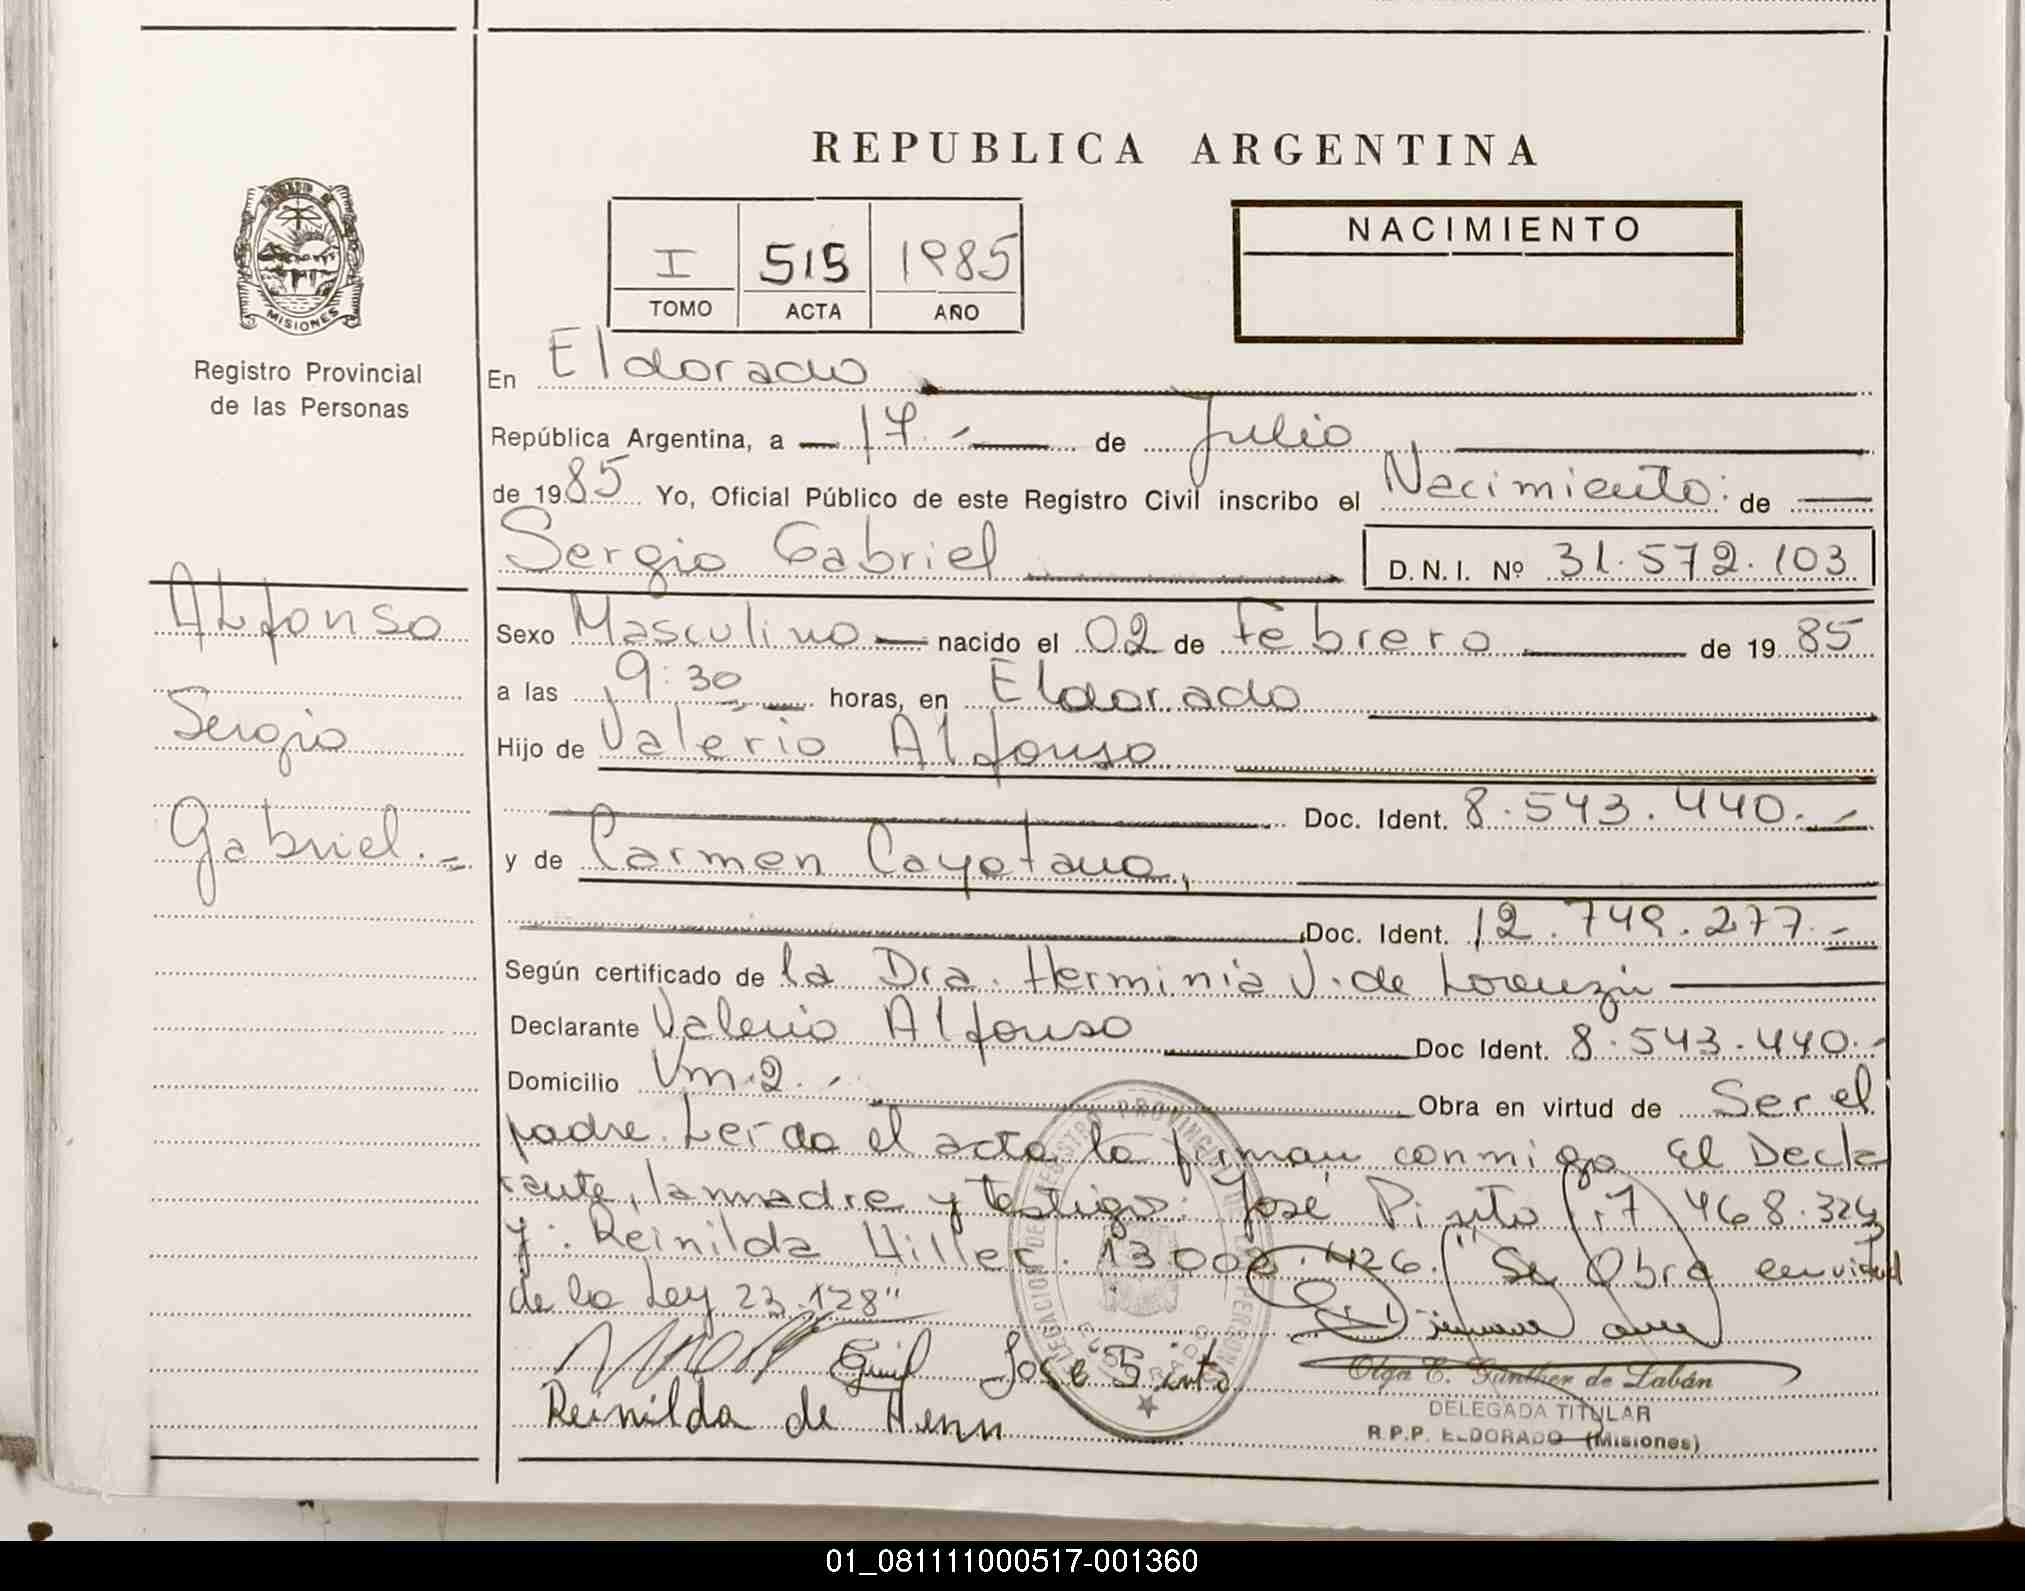 REPUBLICA ARGENTINA
MISIONES
Registro Provincial
de las Personas
I 515 1985
TOMO ACTA AÑO
NACIMIENTO
En Eldorado
República Argentina, a 17.- de Julio
de 1985 Yo, Oficial Público de este Registro Civil inscribo el Nacimiento: de
Sergio Gabriel D.N.I. Nº 31.572.103
Alfonso
Sergio
Gabriel.=
Sexo Masculino nacido el 02 de Febrero de 1985
a las 9:30 horas, en Eldorado
Hijo de Valerio Alfonso
Doc. Ident. 8.543.440.-
y de Carmen Cayetano,
Doc. Ident. 12.749.277.-
Según certificado de la Dra. Herminia J. de Lorenzin
Declarante Valerio Alfonso Doc Ident. 8.543.440.-
Domicilio Km.2.- Obra en virtud de Ser el
padre. Leída el acta la firman conmigo El Decla
rante, la madre y testigos: José Pinto 7.468.324
y: Reinilda Hiller. 13.002.426. "Se Obra en virtud
de la Ley 23.128"
José Pinto
Reinilda de Henn
Olga E. Günther de Labán
DELEGADA TITULAR
R.P.P. ELDORADO (Misiones)
01_081111000517-001360